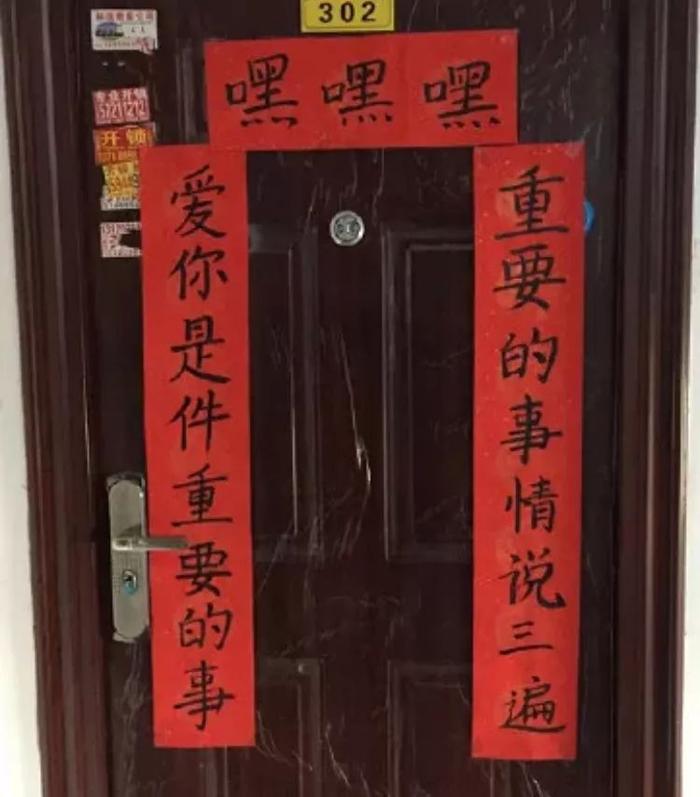 302
嘿嘿嘿
爱你是件重要的事
重要的事情说三遍
专业开锁
开锁